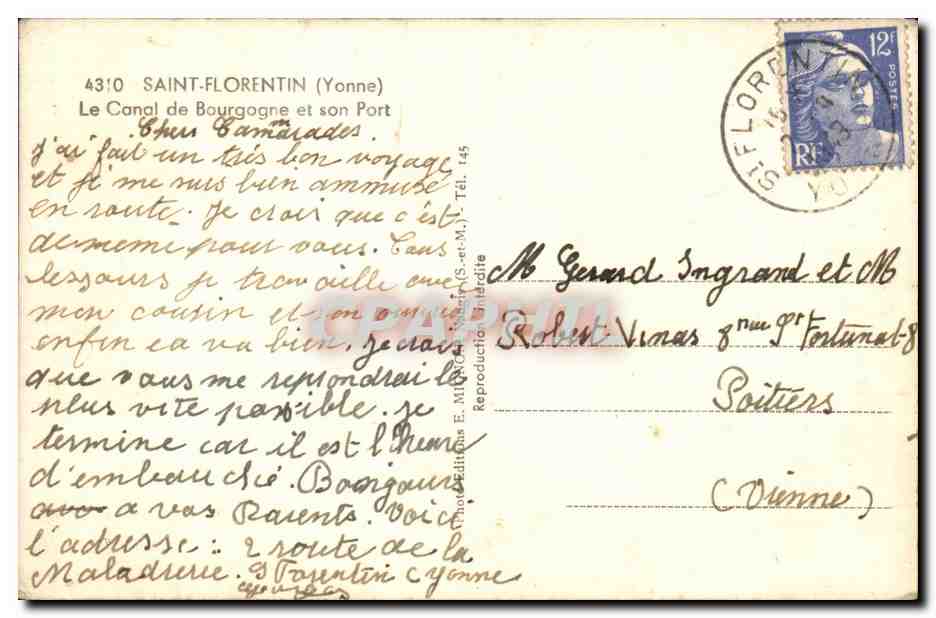 4310 SAINT-FLORENTIN (Yonne)
Le Canal de Bourgogne et son Port
Chers Cammarades.
J'ai fait un très bon voyage
et je me suis bien ammusé
en route. Je crois que c'est
de meme pour vous. Tous
les jours je travaille avec
mon cousin et son
enfin ca va bien. Je crois
que vous me repondrai le
plus vite possible. Je
termine car il est l'heure
d'embauché. Bongours
a vos Parents. Voici
l'adresse : 2 route de la
Maladrerie. St Florentin (Yonne
Photo-Éditions E. MIGNON (S.-et-M.) - Tél. 145
Reproduction interdite
12F
POSTES
RF
ST FLORENTIN
M Gerard Ingrand et M
Robert Vinas 8 rue St Fortunat-8
Poitiers
(Vienne)
CPAPHIL